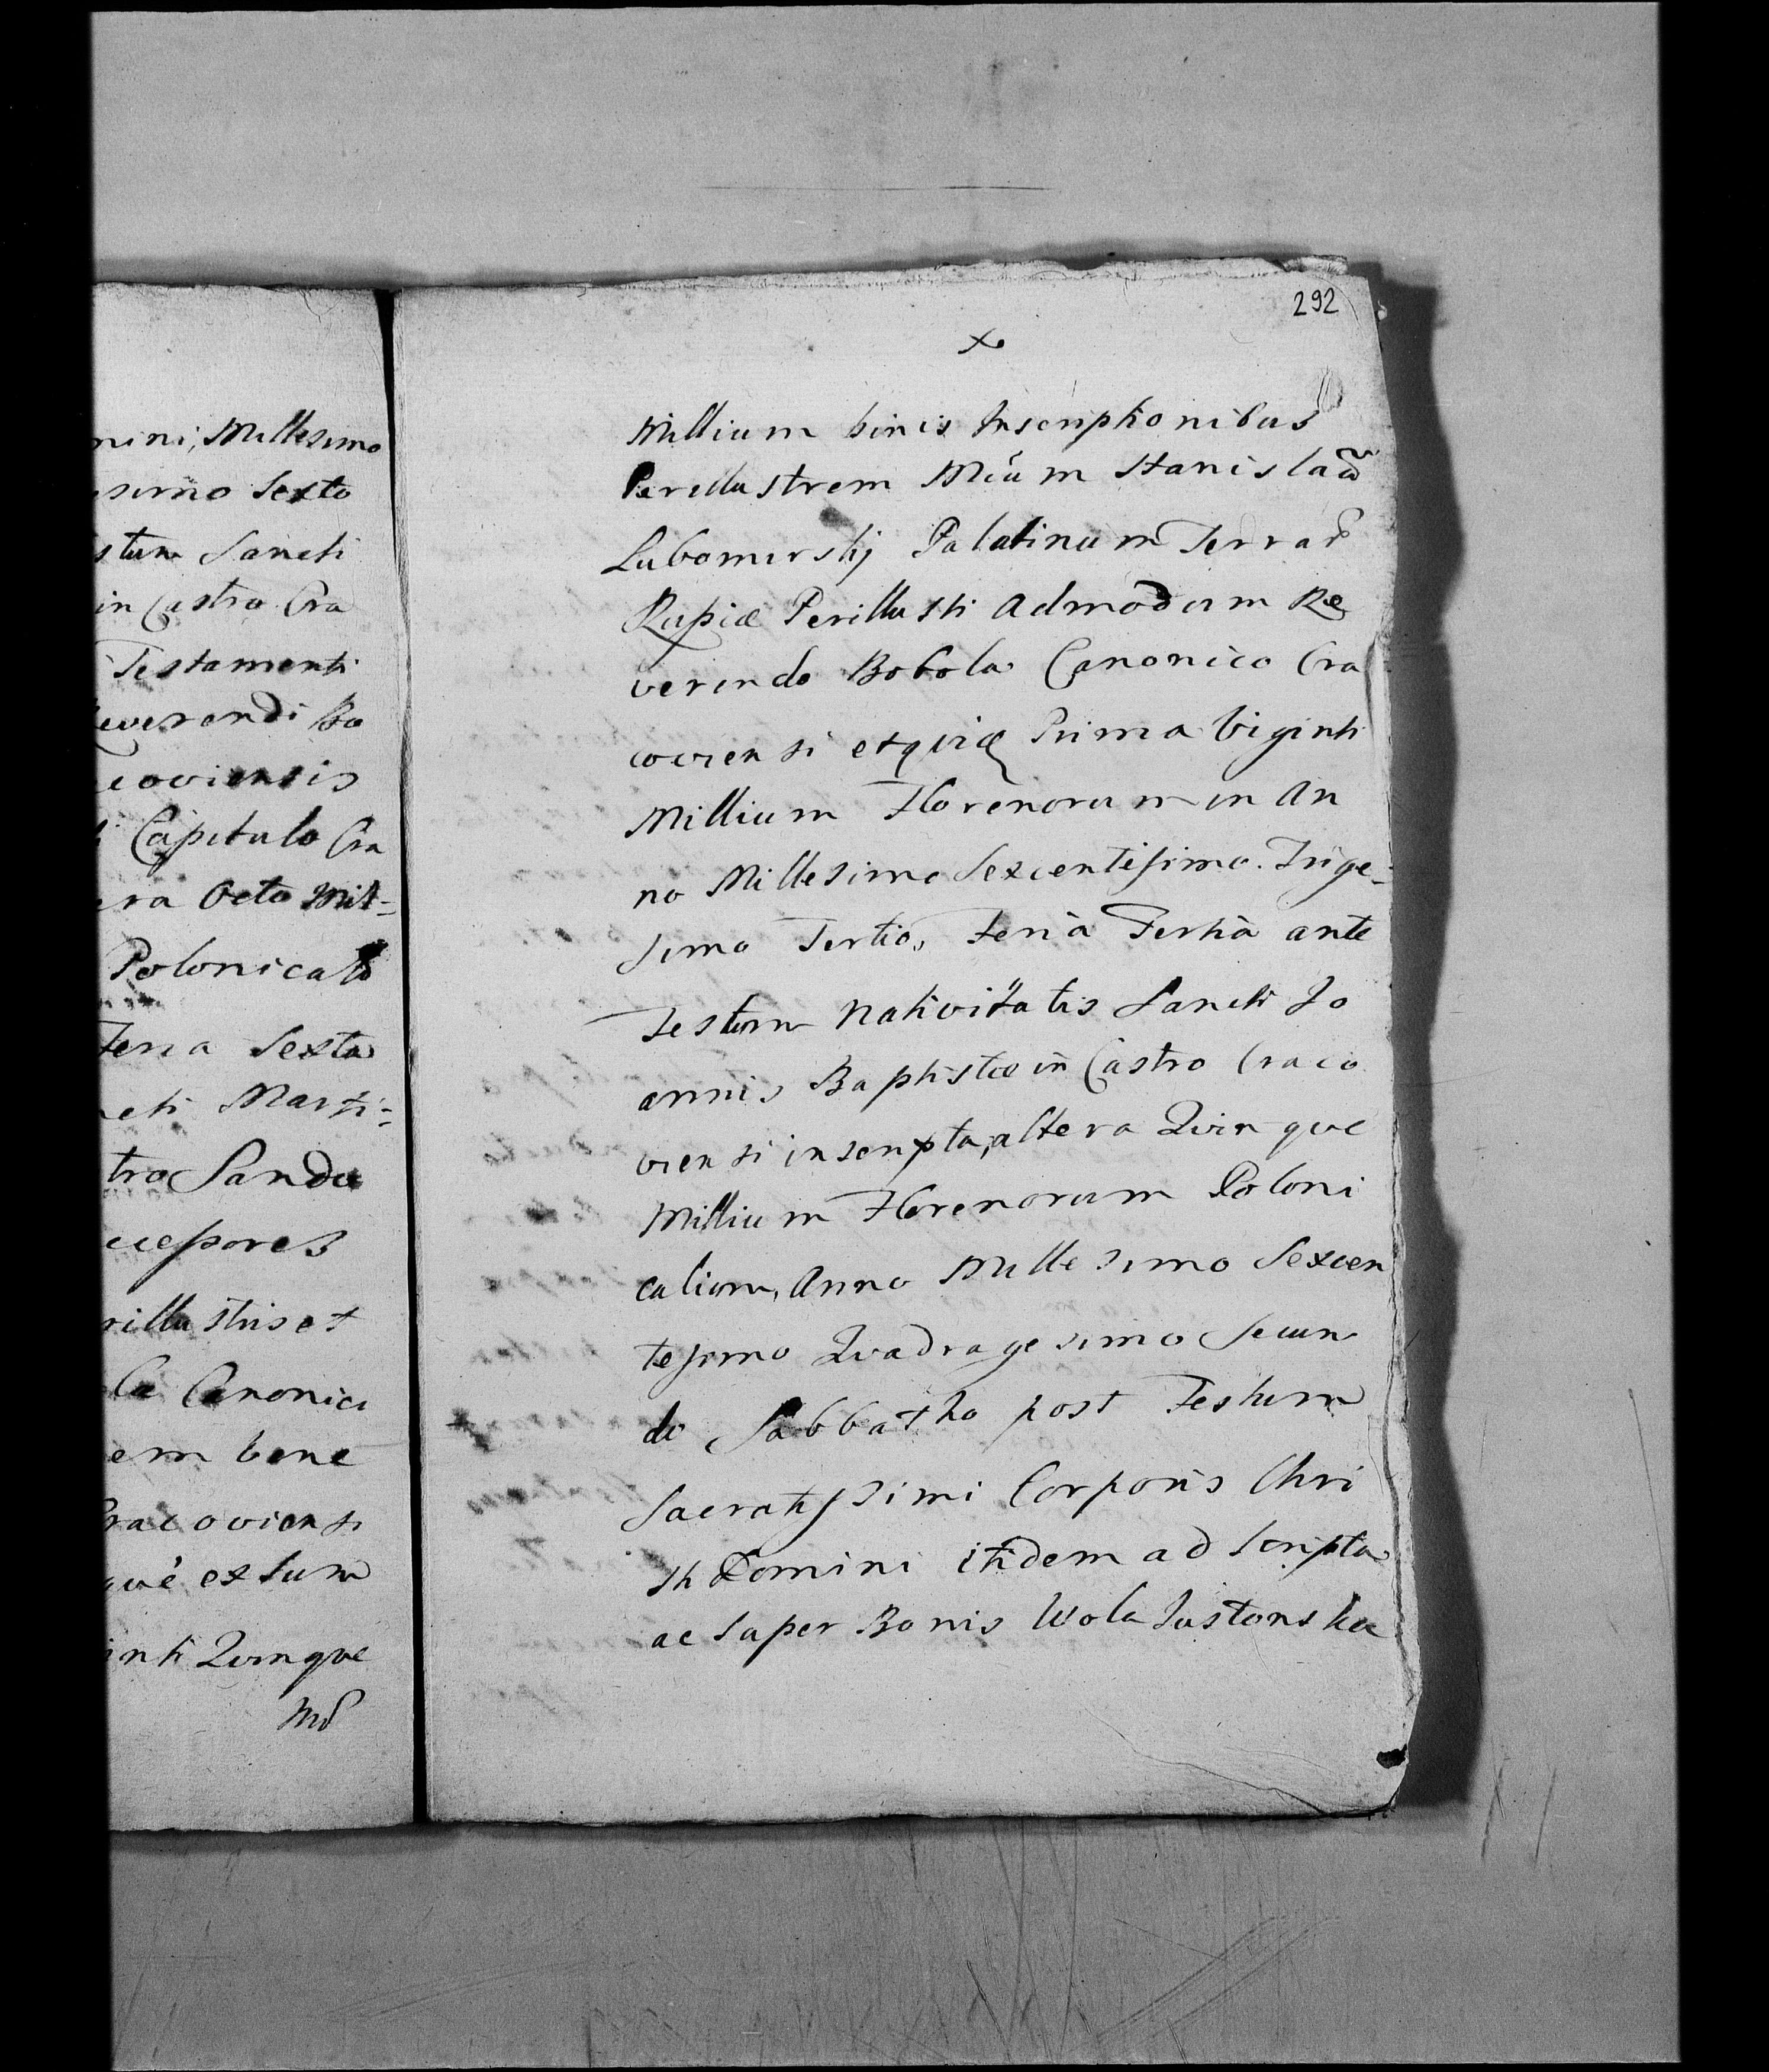 mini, Millesimo
simo Sexto
stum Sancti
in Castro Cra
Testamenti
Reverendi Bo
coviensis
Capitulo Cra
era Octo Mil-
Polonicaliũ
Feria Sexta
cti Marti-
tro Sando
ccessores
rillustris et
la Canonici
em bene
Cracoviensi
què ex sum
inti Quinque
Mil
292
Millium binis Inscriptionibus
Perillustrem Mĩum Stanislaũ
Lubomirskj Palatinum Terrar̃
Russiæ Perillustri Admodum Re
verendo Bobola Canonico Cra
coviensi ex quis Prima Viginti
Millium Florenorum in An
no Millesimo Sexcentesimo Trige-
simo Tertio, Feriâ Tertiâ ante
Festum Nativitatis Sancti Jo
annis Baptistæ in Castro Craco
viensi inscripta, altera Quinque
Millium Florenorum Poloni
calium, Anno Millesimo Sexcen
tesimo Quadragesimo Secun
do Sabbatho post Festum
Sacratissimi Corporis Chri
sti Domini itidem ad scripta
ac super Bonis Wola Justowska